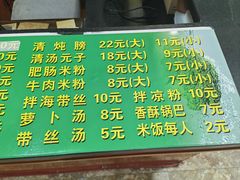 0元 清炖膀 22元(大) 11元(小)
0元 清汤元子 18元(大) 9元(小)
元 肥肠米粉 8元(大) 7元(小)
元 牛肉米粉 8元(大) 7元(小)
元 拌海带丝 10元 拌凉粉 10元
元 萝卜汤 8元 香酥锅巴 7元
元 带丝汤 5元 米饭每人 2元